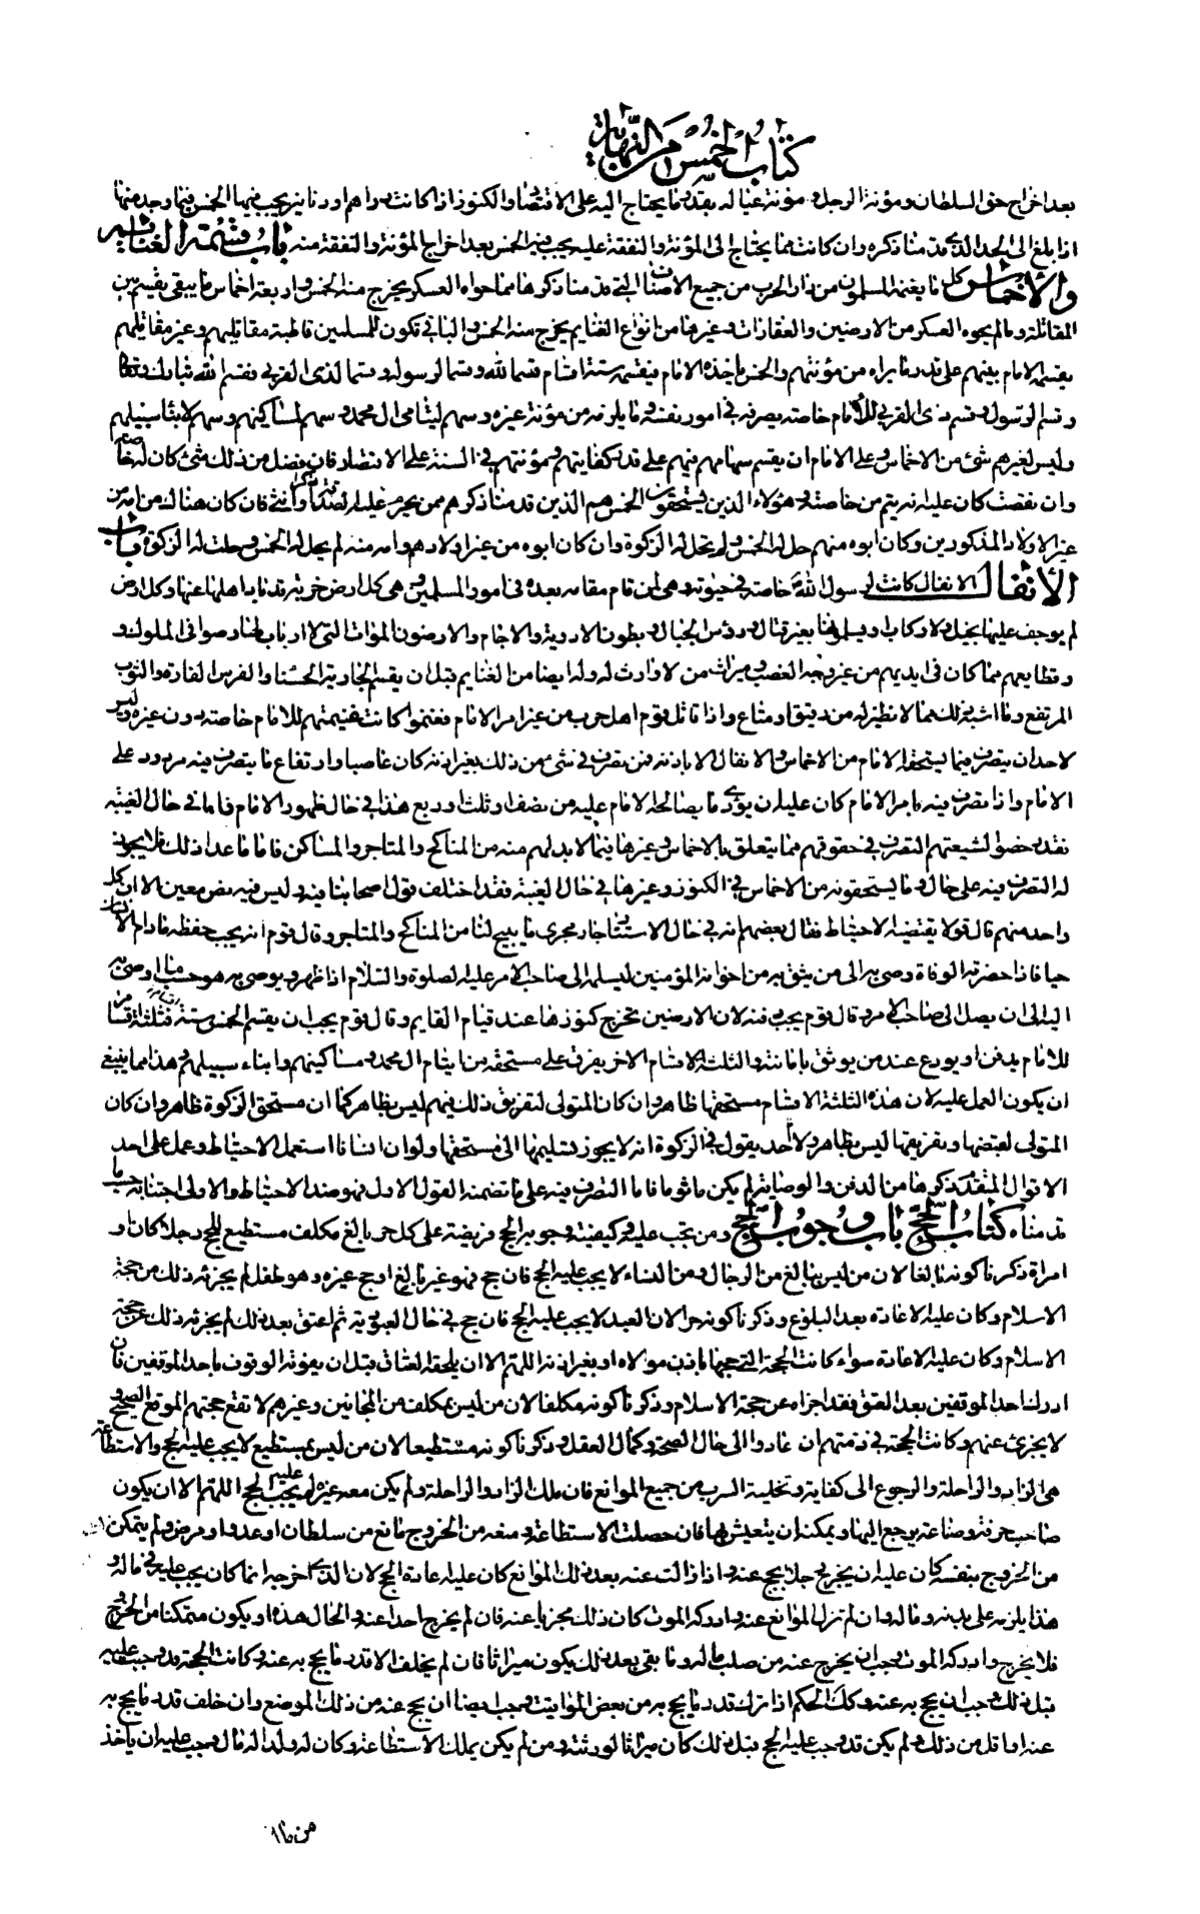 كتاب الخمس من النهاية
بعد اخراج حق السلطان ومؤنة الرجل ومؤنة عياله بقدر ما يحتاج اليه على الاقتصاد والكنوز اذا كانت دراهم او دنانير يجب فيها الخمس فيما وجد منها
اذا بلغ الى الحد الذى قدمنا ذكره وان كانت مما يحتاج الى المؤنة والنفقة عليه يجب فيه الخمس بعد اخراج المؤنة والنفقة منه باب قسمة الغنايم
والاخماس كل ما يغنمه المسلمون من دار الحرب من جميع الاصناف التى قدمنا ذكرها مما حواه العسكر يخرج منه الخمس واربعة اخماس ما يبقى يقسم بين
المقاتلة وما لم يحوه العسكر من الارضين والعقارات وغيرها من انواع الغنايم يخرج منه الخمس والباقى تكون للمسلمين قاطبة مقاتليهم وغير مقاتليهم
يقسمه الامام بينهم على قدر ما يراه من مؤنتهم والخمس ياخذه الامام فيقسمه ستة اقسام قسما لله وقسما لرسوله وقسما لذى القربى فقسم الله تبارك وتعالى
وقسم الرسول وقسم ذى القربى للامام خاصة يصرفه فى امور نفسه وما يلزمه من مؤنة غيره وسهم ليتامى ال محمد وسهم لمساكينهم وسهم لابناء سبيلهم
وليس لغيرهم شئ من الاخماس وعلى الامام ان يقسم سهامهم فيهم على قدر كفايتهم ومؤنتهم فى السنة على الاقتصاد فان فضل من ذلك شئ كان له خاصة
وان نقصت كان عليه ان يتم من خاصته وهؤلاء الذين يستحقون الخمس هم الذين قدمنا ذكرهم ممن يحرم عليه الصدقة ذكرا وانثى فان كان هناك من امه من
غير الاولاد المذكورين وكان ابوه منهم حل له الخمس ولم تحل له الزكوة وان كان ابوه من غير اولادهم وامه منهم لم يحل له الخمس وحلت له الزكوة باب
الانفال الانفال كانت لرسول الله خاصة فى حيوته وهى لمن قام مقامه بعده فى امور المسلمين وهى كل ارض خربة قد باد اهلها عنها وكل ارض
لم يوجف عليها بخيل ولا ركاب او يسلمونها بغير قتال ورؤس الجبال وبطون الاودية والاجام والارضون الموات التى لا ارباب لها وصوافى الملوك و
قطايعهم مما كان فى ايديهم من غير وجه الغصب وميراث من لا وارث له وله ايضا من الغنايم قبل ان يقسم الجارية الحسناء والفرس الفاره والثوب
المرتفع وما اشبه ذلك مما لا نظير له من رقيق او متاع واذا قاتل قوم اهل حرب من غير امر الامام فغنموا كانت غنيمتهم للامام خاصة دون غيره وليس
لاحد ان يتصرف فيما يستحقه الامام من الاخماس والانفال الا باذنه فمن تصرف فى شئ من ذلك بغير اذنه كان غاصبا وارتفاع ما يتصرف فيه مردود على
الامام واذا تصرف فيه بامر الامام كان عليه ان يؤدى ما يصالحه الامام عليه من نصف او ثلث او ربع هذا فى حال ظهور الامام فاما فى حال الغيبة
فقد رخصوا لشيعتهم التصرف فى حقوقهم مما يتعلق بالاخماس وغيرها فيما لا بد لهم منه من المناكح والمتاجر والمساكن فاما ما عدا ذلك فلا يجوز
له التصرف فيه على حال وما يستحقونه من الاخماس فى الكنوز وغيرها فى حال الغيبة فقد اختلف قول اصحابنا فيه وليس فيه نص معين الا ان كل
واحد منهم قال قولا يقتضيه الاحتياط فقال بعضهم انه فى حال الاستتار جار مجرى ما ابيح لنا من المناكح والمتاجر وقال قوم انه يجب حفظه ما دام الانسان
حيا فاذا حضرته الوفاة وصى به الى من يثق به من اخوانه المؤمنين ليسلمه الى صاحب الامر عليه الصلوة والسلام اذا ظهر ويوصى به هو حسب ما اوصى به
اليه الى ان يصل الى صاحب الامر وقال قوم يجب دفنه لان الارضين تخرج كنوزها عند قيام القايم وقال قوم يجب ان يقسم الخمس ستة فثلثة اقسام
للامام يدفن او يودع عند من يوثق بامانته والثلثة الاقسام الاخر يفرق على مستحقيه من ايتام ال محمد ومساكينهم وابناء سبيلهم وهذا مما ينبغى
ان يكون العمل عليه لان هذه الثلثة الاقسام مستحقها ظاهر وان كان المتولى لتفريق ذلك فيهم ليس بظاهر كما ان مستحق الزكوة ظاهر وان كان
المتولى لقبضها وتفريقها ليس بظاهر ولا احد يقول فى الزكوة انه لا يجوز تسليمها الى مستحقها ولو ان انسانا استعمل الاحتياط وعمل على احد
الاقوال المتقدم ذكرها من الدفن والوصاية لم يكن ماثوما فاما التصرف فيه على ما تضمنه القول الاول فهو ضد الاحتياط والاولى اجتنابه حسب ما
قدمناه كتاب الحج باب وجوب الحج ومن يجب عليه وكيفية وجوبه الحج فريضة على كل حر بالغ مكلف مستطيع للحج رجلا كان او
امراة ذكرنا كونه بالغا لان من ليس ببالغ من الرجال ومن النساء لا يجب عليه الحج فان حج فهو غير بالغ او حج غيره وهو طفل لم يجزئه ذلك من حجة
الاسلام وكان عليه الاعادة بعد البلوغ وذكرنا كونه حرا لان العبد لا يجب عليه الحج فان حج فى حال العبودية ثم اعتق بعد ذلك لم يجزئه ذلك عن حجة
الاسلام وكان عليه الاعادة سواء كانت الحجة التى حجها باذن مولاه او بغير اذنه اللهم الا ان يلحقه العتاق قبل ان يفوته الوقوف باحد الموقفين فان
ادرك احد الموقفين بعد العتق فقد اجزاه عن حجة الاسلام وذكرنا كونه مكلفا لان من ليس بمكلف من المجانين وغيرهم لا تقع حجتهم الموقع الصحيح و
لا يجزئ عنهم وكانت الحجة فى ذمتهم ان عادوا الى حال الصحة وكمال العقل وذكرنا كونه مستطيعا لان من ليس بمستطيع لا يجب عليه الحج والاستطاعة
هى الزاد والراحلة والرجوع الى كفاية وتخلية السرب من جميع الموانع فان ملك الزاد والراحلة ولم يكن معه غيره لم يجب عليه الحج اللهم الا ان يكون
صاحب حرفة وصناعة يرجع اليها ويمكنه ان يتعيش بها فان حصلت الاستطاعة ومنعه من الخروج مانع من سلطان او عدو او مرض ولم يتمكن
من الخروج بنفسه كان عليه ان يخرج رجلا يحج عنه واذا زالت عنه بعد ذلك الموانع كان عليه اعادة الحج لان الذى اخرجه انما كان يجب عليه فى ماله و
هذا يلزمه على بدنه وماله وان لم تزل الموانع عنه وادركه الموت كان ذلك مجزيا عنه فان لم يخرج احدا عنه والحال هذه او يكون متمكنا من الخروج
فلا يخرج وادركه الموت وجب ان يخرج عنه من صلب ماله وما بقى بعد ذلك يكون ميراثا فان لم يخلف الا قدر ما يحج به عنه وكانت الحجة قد وجبت عليه
قبل ذلك وجب ان يحج به عنه وكذلك الحكم اذا ترك قدر ما يحج به من بعض المواقيت وجب ايضا ان يحج عنه من ذلك الموضع وان خلف قدر ما يحج به
عنه او اقل من ذلك ولم يكن قد وجب عليه الحج قبل ذلك كان ميراثا لورثته ومن لم يكن يملك الاستطاعة وكان له ولد له مال وجب عليه ان ياخذ
من ماله